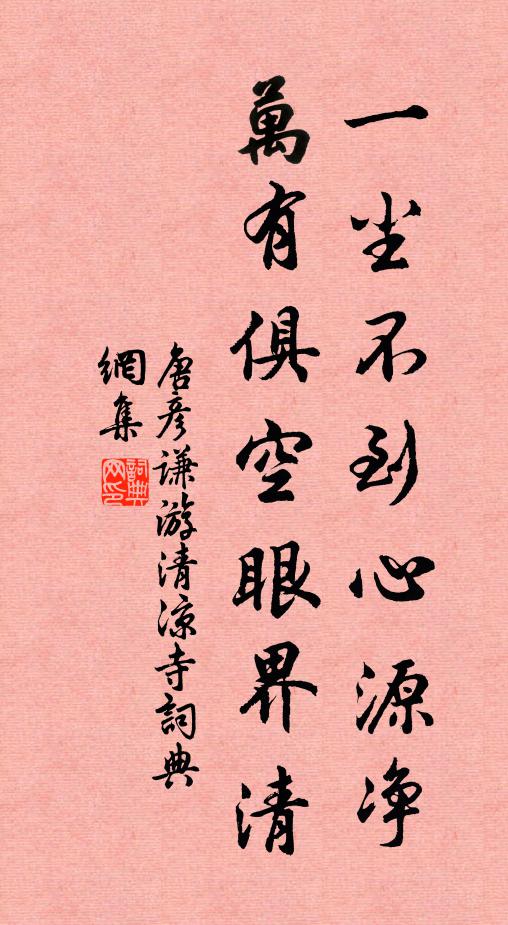 一尘不到心源净
萬有俱空眼界清
唐彦谦游清凉寺詞典
網集
詞典
网印